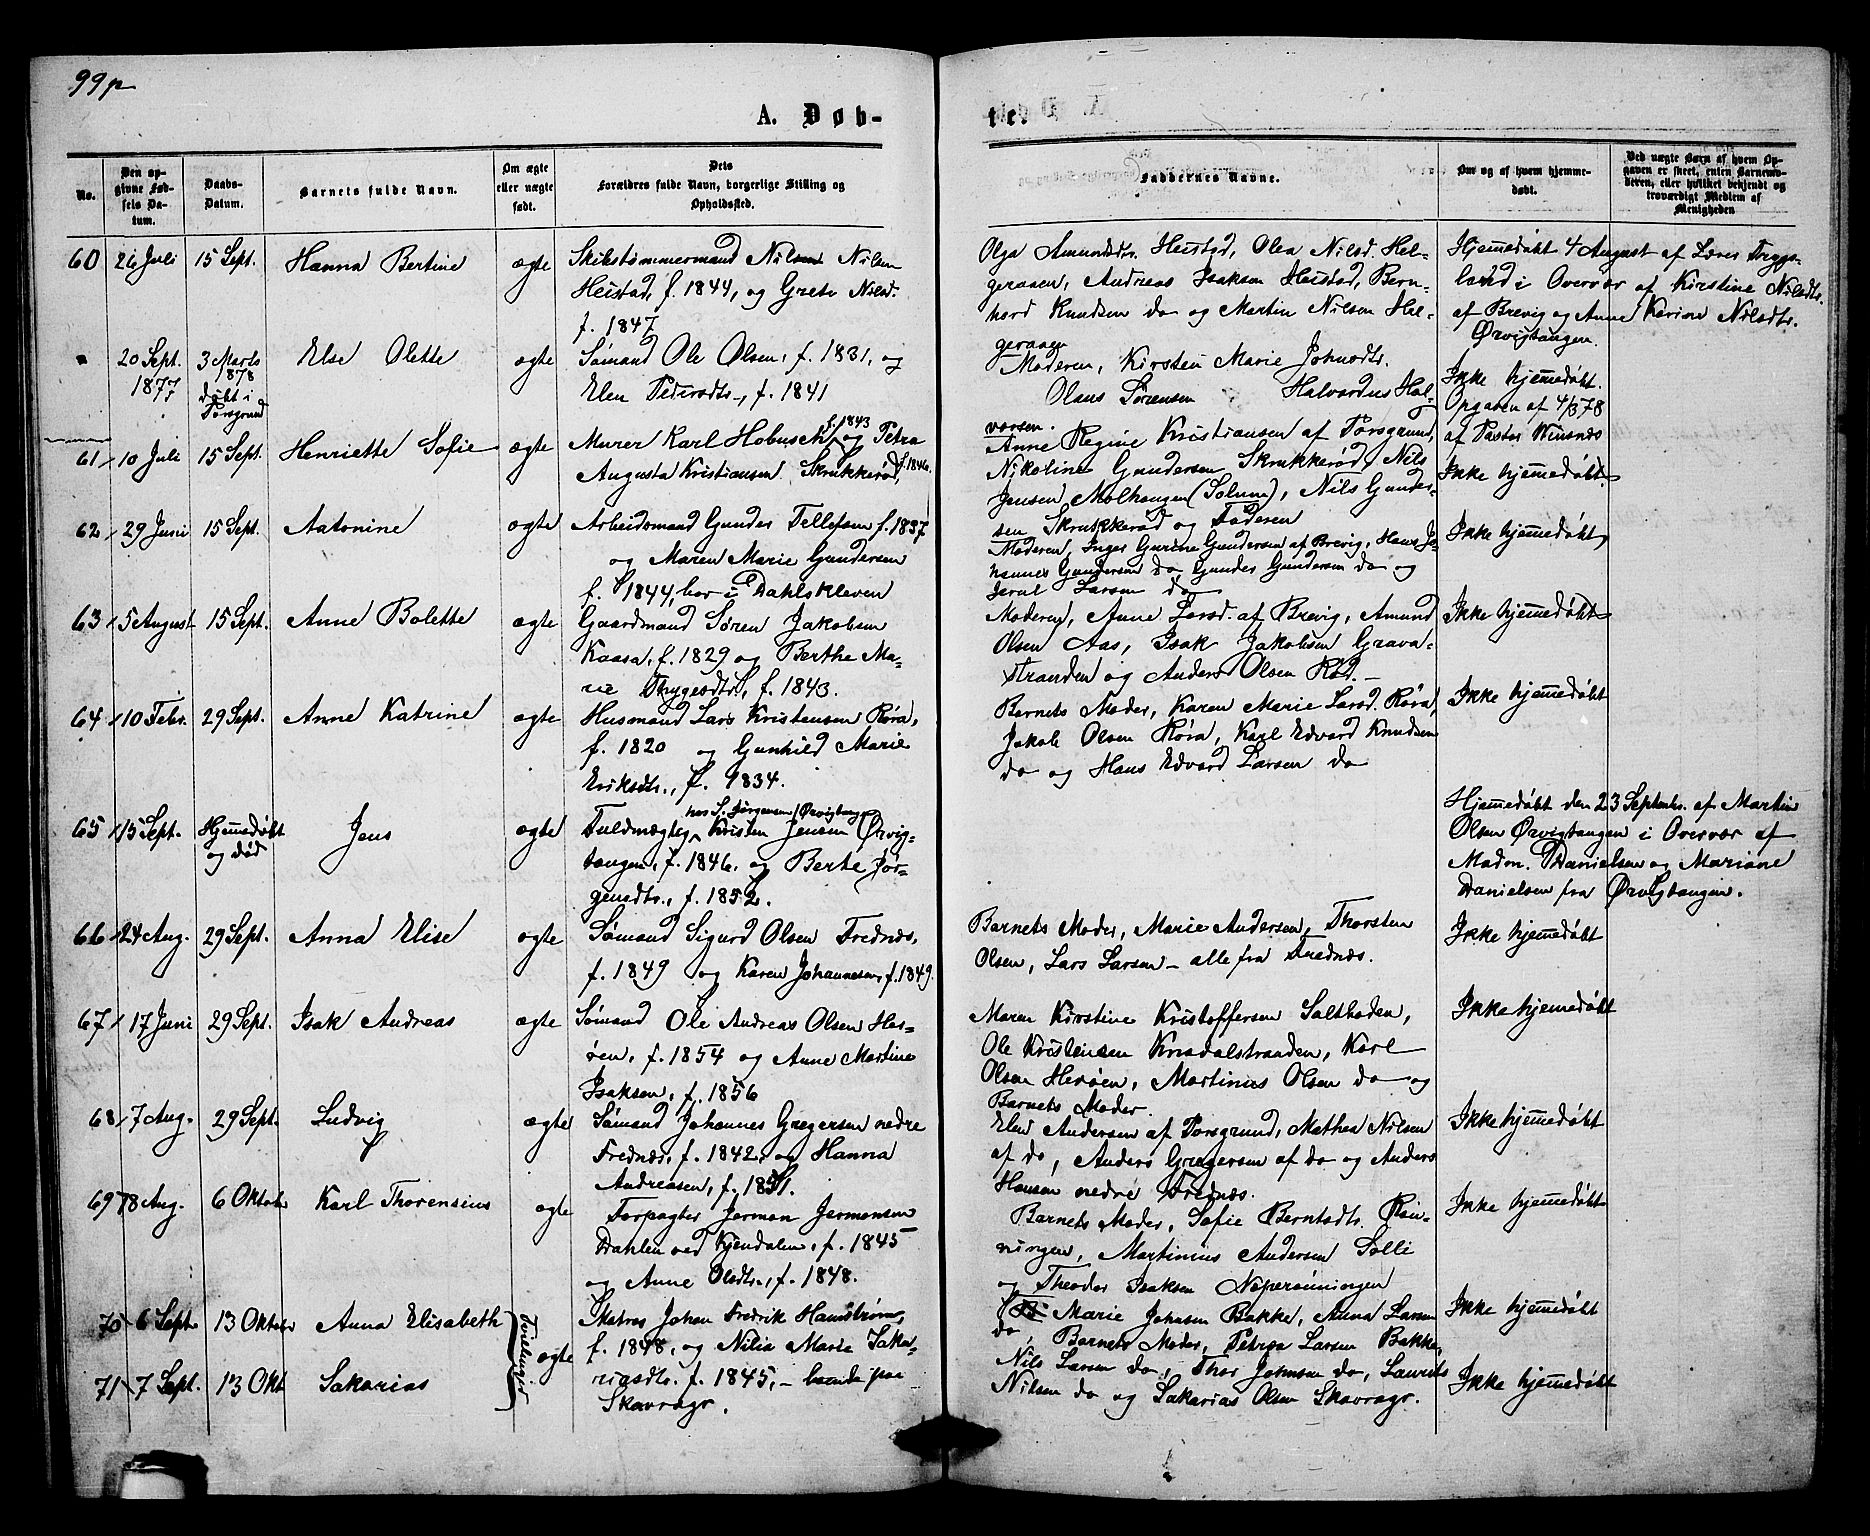 99p
A. Døb-
te.
No.
Den op-
givne Fød-
sels Da-
tum.
Daabs-
Datum.
Barnets fulde Navn.
Om ægte
eller uægte
født.
Dets
Forældres fulde Navn, borgerlige Stilling og
Opholdssted.
Faddernes Navne.
Om og af hvem hjemme-
døbt.
Ved uægte Børn af hvem Op-
gaven er skeet, enten Barnemo-
deren, eller hvilket bekjendt og
troværdigt Medlem af
Menigheden
60 26 Juli 15 Sept. Hanna Bertine ægte
Skibstømmermand Nilsen Nilsen
Heistad, f. 1844, og Grete Nilsd.
f. 1847
Olga Amundsdr. Heistad, Olea Nilsd. Hel-
geraaen, Andreas Isaksen Heistad, Bern-
hard Knudsen do og Martin Nilsen Hel-
geraaen
Hjemmedøbt 4 August af Lærer Trygs-
land i Overvær af Kirstine Nilsdtr.
af Brevig og Anne Karine Nilsdtr.
Ørvigtangen.
" 20 Sept. 1877 3 Marts 1878 døbt i Porsgrund Else Olette ægte
Sømand Ole Olsen, f. 1831, og
Elen Pedersdtr., f. 1841
Moderen, Kirsten Marie Johnsdtr.
Olaus Sørensen Halvardus Hal-
vorsen.
Ikke hjemmedøbt.
Opgaven af 4/3 78
af Pastor Winsnæs
61 10 Juli 15 Sept. Henriette Sofie ægte
Murer Karl Hobusch f. 1843 og Petra
Augusta Kristiansen Skrukkerød, f. 1846.
Anne Regine Kristiansen af Porsgrund,
Nikoline Gundersen Skrukkerød, Nils
Jensen Molhaugen (Solum), Nils Gunder-
sen Skrukkerød og Faderen
Ikke hjemmedøbt.
62 29 Juni 15 Sept. Antonine ægte
Arbeidsmand Gunder Tellefsen f. 1837
og Maren Marie Gundersen
f. 1844, bor i Dahlskleven
Moderen, Inger Gurine Gundersen af Brevig, Hans Jo-
hannes Gundersen do Gunder Gundersen do og
Larsen do
Ikke hjemmedøbt
63 5 August 15 Sept. Anne Bolette ægte
Gaardmand Søren Jakobsen
Kaasa, f. 1829 og Berthe Ma-
rie Thygesdtr, f. 1843.
Moderen, Anne Larsd. af Brevig, Amund
Olsen Aas, Isak Jakobsen Grava-
stranden og Anders Olsen Rød. —
Ikke hjemmedøbt
64 10 Febr. 29 Sept. Anne Katrine ægte
Husmand Lars Kristensen Røra,
f. 1820 og Gunhild Marie
Eriksdtr., f. 1834.
Barnets Moder, Karen Marie Larsd. Røra,
Jakob Olsen Røra, Karl Edvard Knudsen
do og Hans Edvard Larsen do
Ikke hjemmedøbt
65 15 Sept. Hjemmedøbt og død Jens ægte
hos S. Jørgensen, Ørvigtangen
Fuldmægtig Kristen Jensen Ørvig-
tangen, f. 1846. og Berte Jør-
gensdtr., f. 1852.
Hjemmedøbt den 23 Septembr. af Martin
Olsen Ørvigtangen i Overvær af
Madm. Danielsen og Mariane
Danielsen fra Ørvigtangen.
66 24 Aug. 29 Sept. Anna Elise ægte
Sømand Sigurd Olsen Frednæs,
f. 1849 og Karen Johannesen, f. 1849.
Barnets Moder, Marie Andersen, Thorsten
Olsen, Lars Larsen — alle fra Frednæs.
Ikke hjemmedøbt
67 17 Juni 29 Sept. Isak Andreas ægte
Sømand Ole Andreas Olsen Her-
øen, f. 1854 og Anne Martine
Isaksen, f. 1856
Maren Kirstine Kristoffersen Saltboden,
Ole Kristensen Knadalstranden, Karl
Olsen Herøen, Martinus Olsen do og
Barnets Moder.
Ikke hjemmedøbt
68 7 Aug. 29 Sept. Ludvig ægte
Sømand Johannes Gregersen nedre
Frednæs, f. 1842, og Hanna
Andreasen, f. 1851.
Elen Andersen af Porsgrund, Mathea Nilsen
af do, Anders Gregersen af do og Anders
Hansen nedre Frednæs.
Ikke hjemmedøbt
69 18 Aug. 6 Oktober Karl Thorensius ægte
Forpagter Jermon Jermonsen
Dahlen ved Kjendalen, f. 1845
og Anne Olsdtr., f. 1848.
Barnets Moder, Sofie Berntsdtr. Røn-
ningen, Martinius Andersen Solli
og Theodor Isaksen Neperønningen
Ikke hjemmedøbt
70 6 Sept. 13 Oktober Anna Elisabeth
Tvillinger ægte
Matros Johan Fredrik Hamstrøm,
f. 1848, og Nilia Marie Saka-
riasdtr. f. 1845, — bende paa
Skavrager.
Marie Johnsen Bakke, Anna Larsen
do Barnets Moder, Petrea Larsen Bakke,
Nils Larsen do, Thor Johnsen do, Laurits
Nilsen do og Sakarias Olsen Skavrager.
Ikke hjemmedøbt
71 7 Sept. 13 Okt Sakarias
Ikke hjemmedøbt